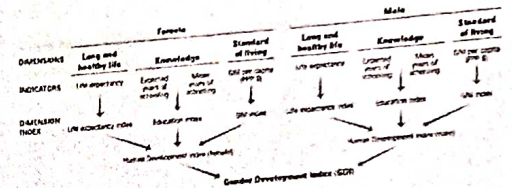 Female
Male
DIMENSIONS
Long and healthy life
Knowledge
Standard of living
Long and healthy life
Knowledge
Standard of living
INDICATORS
Life expectancy
Expected years of schooling
Mean years of schooling
GNI per capita (PPP $)
Life expectancy
Expected years of schooling
Mean years of schooling
GNI per capita (PPP $)
DIMENSION INDEX
Life expectancy index
Education index
GNI index
Life expectancy index
Education index
GNI index
Human Development Index (female)
Human Development Index (male)
Gender Development Index (GDI)